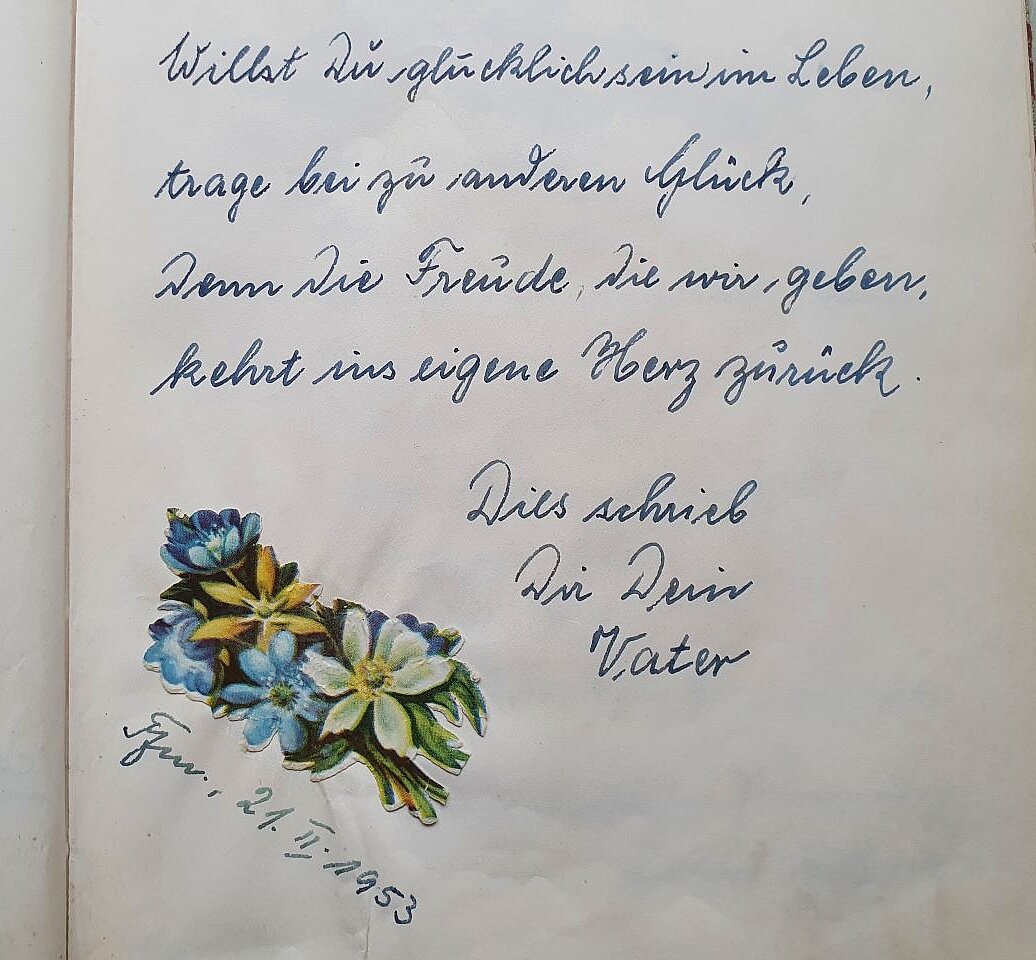 Willst Du glücklich sein im Leben,
trage bei zu anderen Glück,
Denn die Freude, die wir geben,
kehrt ins eigene Herz zurück.
Dies schrieb
Dir Dein
Vater
21. II. 1953